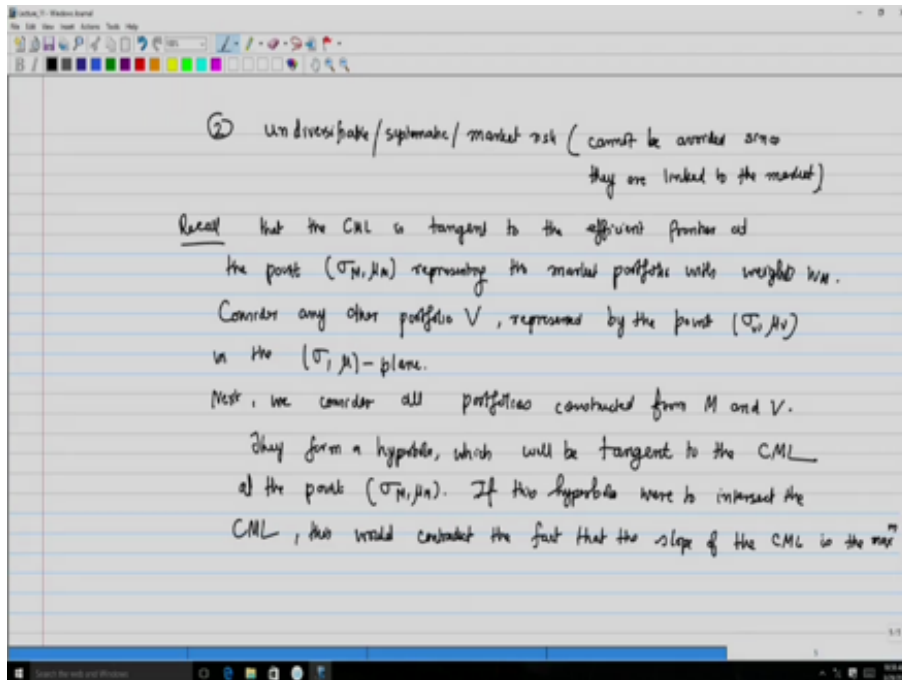 Lecture_11 - Windows Journal
File Edit View Insert Actions Tools Help
② undiversifiable/systematic/market risk (cannot be avoided since
they are linked to the market)
Recall that the CML is tangent to the efficient frontier at
the point (σ_M, μ_M) representing the market portfolio with weights w_M.
Consider any other portfolio V, represented by the point (σ_V, μ_V)
in the (σ, μ)-plane.
Next, we consider all portfolios constructed from M and V.
They form a hyperbola, which will be tangent to the CML
at the point (σ_M, μ_M). If this hyperbola were to intersect the
CML, this would contradict the fact that the slope of the CML is the max^m
5/5
5
Search the web and Windows